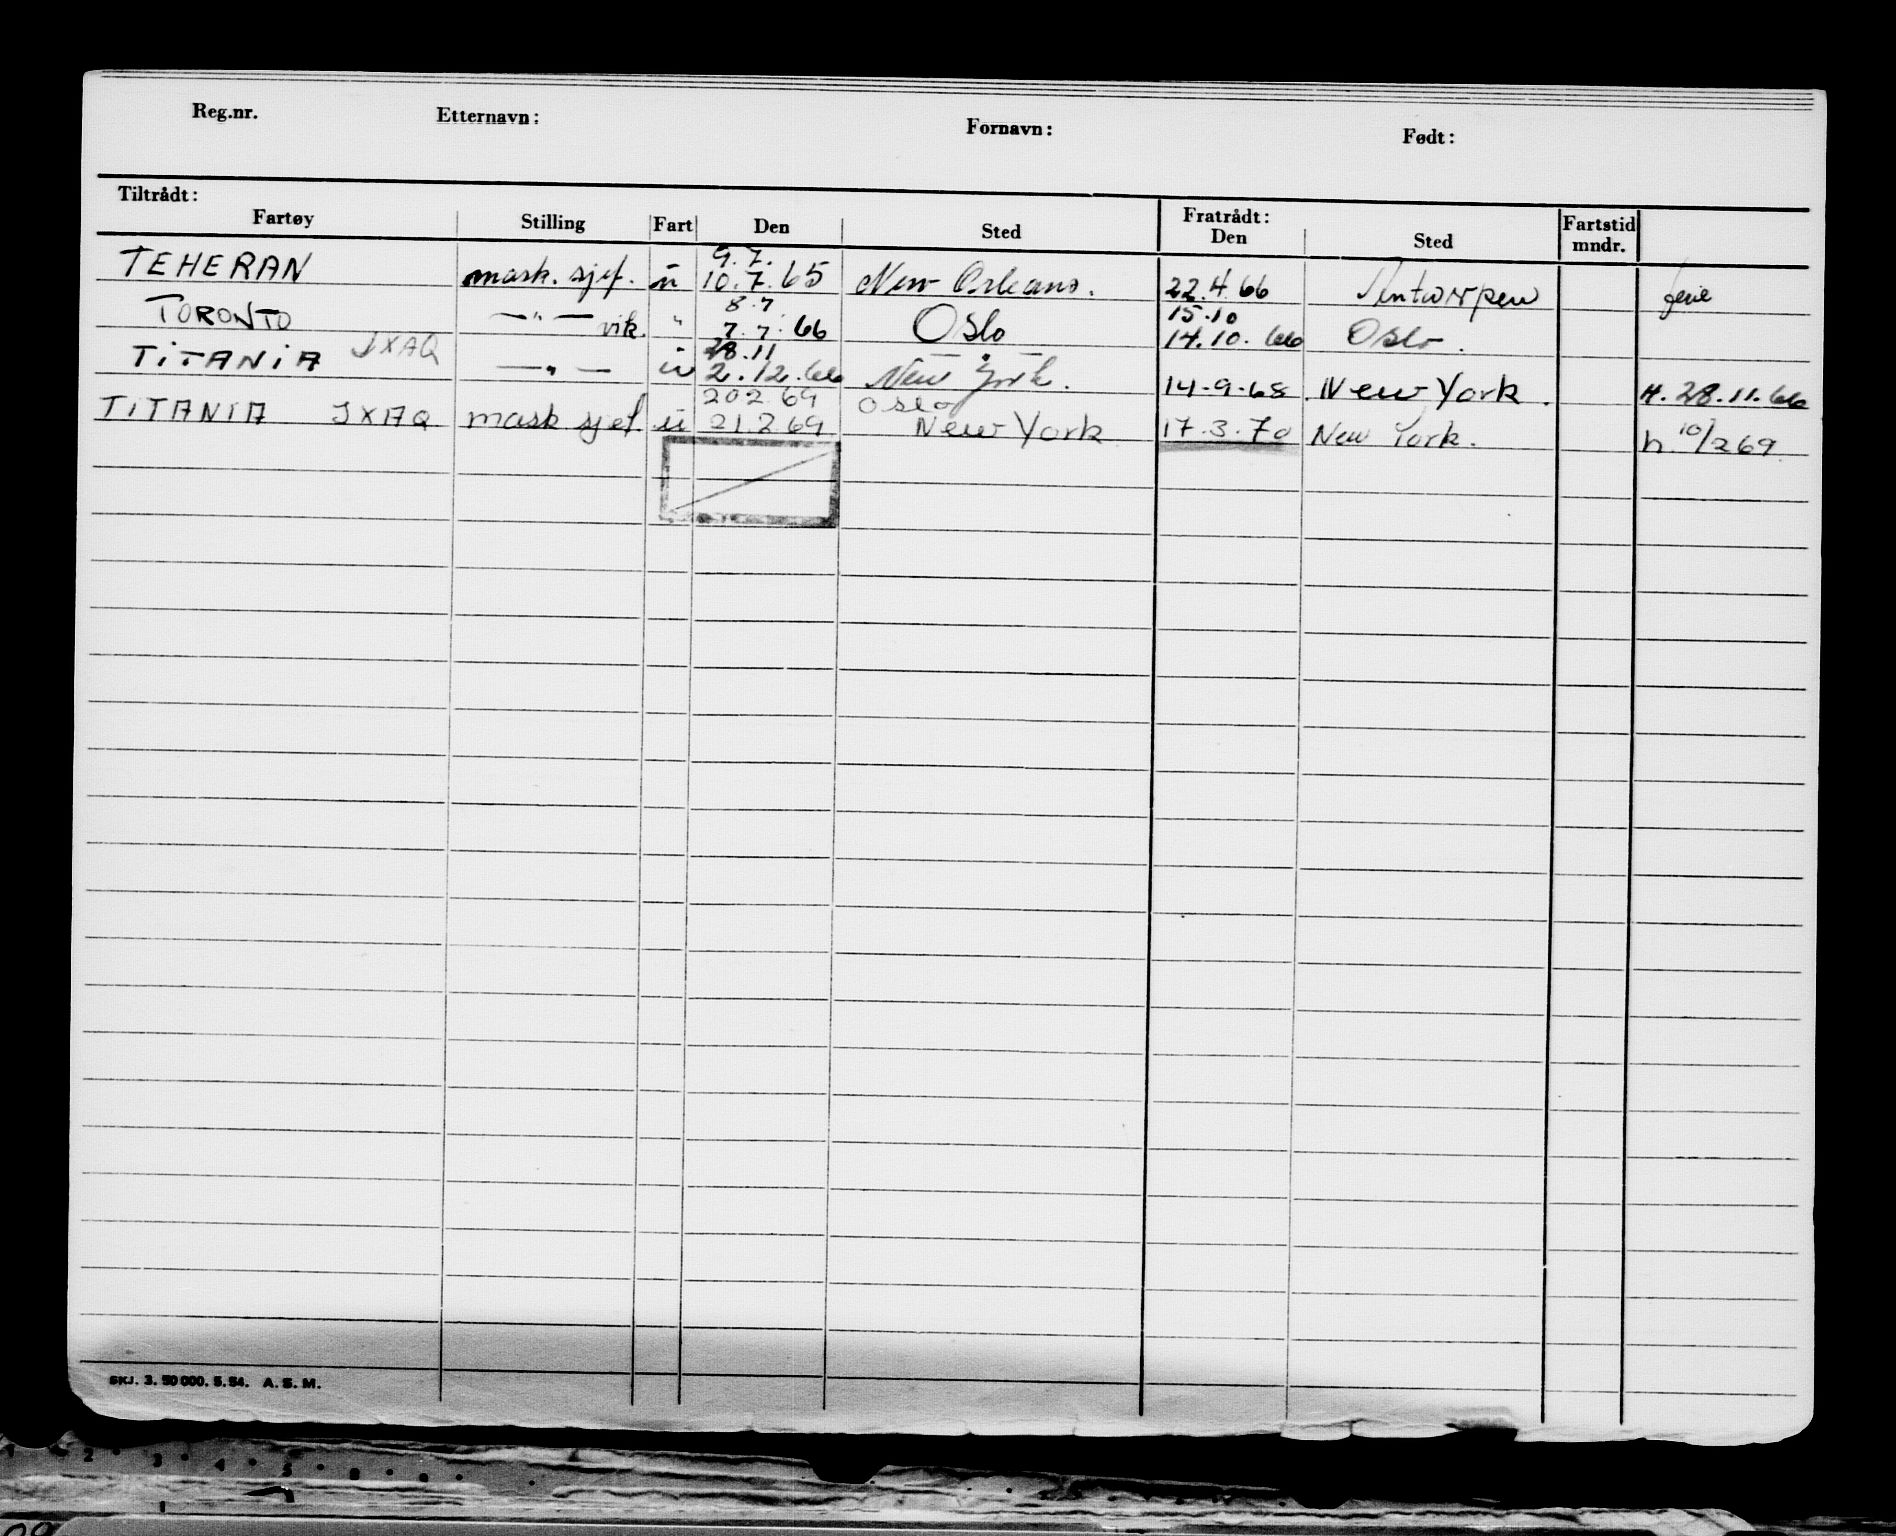 Reg.nr. Etternavn: Fornavn: Født:
Tiltrådt: Fratrådt:
Fartøy Stilling Fart Den Sted Den Sted Fartstid mndr.
9.7.
TEHERAN mask. sjef. u 10.7.65 New Orleans. 22.4.66 Antwerpen ferie
8.7 15.10
TORONTO —"— vik. " 7.7.66 Oslo 14.10.66 Oslo.
28.11 — " —
TITANIA JXAQ —"— u 2.12.66 New York. 14-9-68 New York. H. 28.11.66
20 2 69 Oslo
TITANIA JXAQ mask sjef u 21.2 69 New York 17.3.70 New York. h. 10/2 69
SKJ. 3. 50 000. 5.54. A. S. M.
2 3 4 5 6